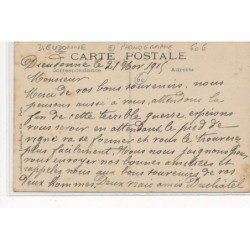 DIEUDONNE PHONOGRAPHE 60 €
CARTE POSTALE
Correspondance Adresse
Dieudonne le 21 1915
Monsieur
Merci de vos bons souvenirs, nous
pensons aussi à vous, attendons la
fin de cette terrible guerre, espérons
vous revoir en attendant le pied de
vigne va se former et vous le trouverez
plus facilement. Nous nous faisons
vous envoyer nos bonnes amitiés et
rappelez nous aux bons souvenirs de vos
deux hommes. Deux vrais amis Duchatel